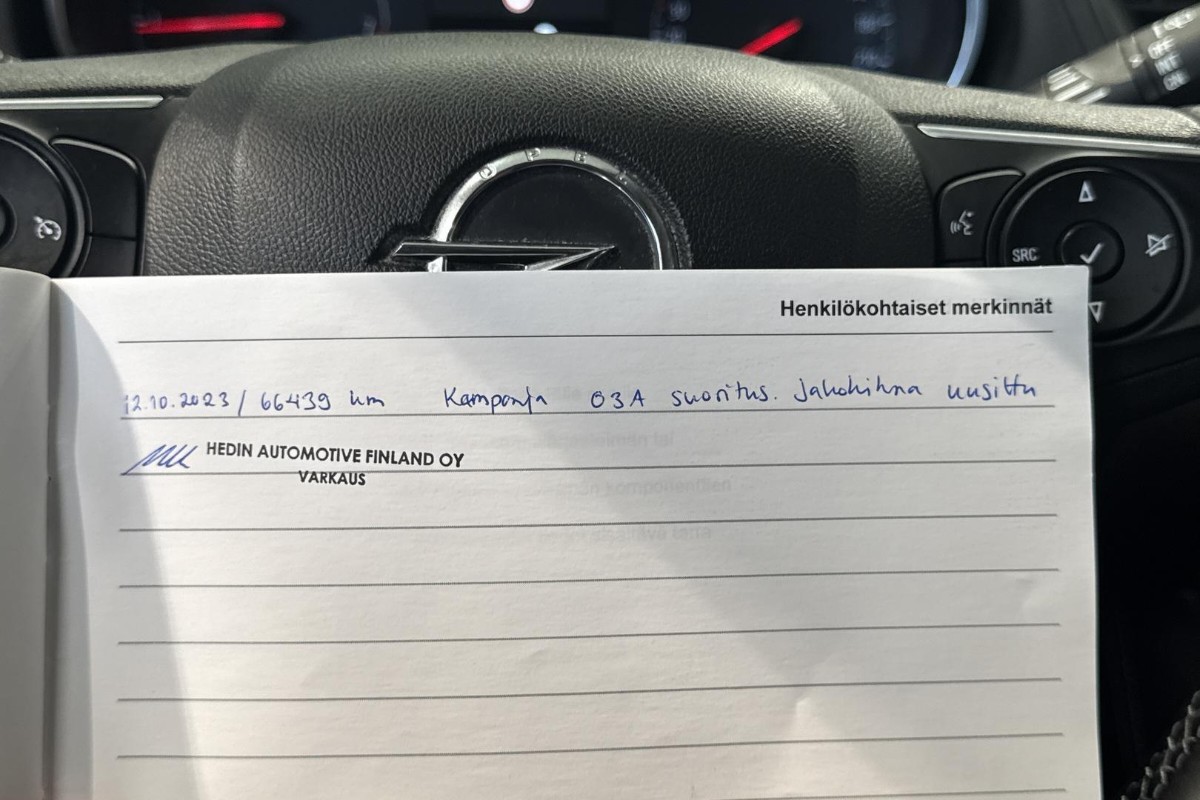 OPEL
SRC
Henkilökohtaiset merkinnät
12.10.2023 / 66439 km Kampanja 03A suoritus. Jakohihna uusittu
HEDIN AUTOMOTIVE FINLAND OY
VARKAUS